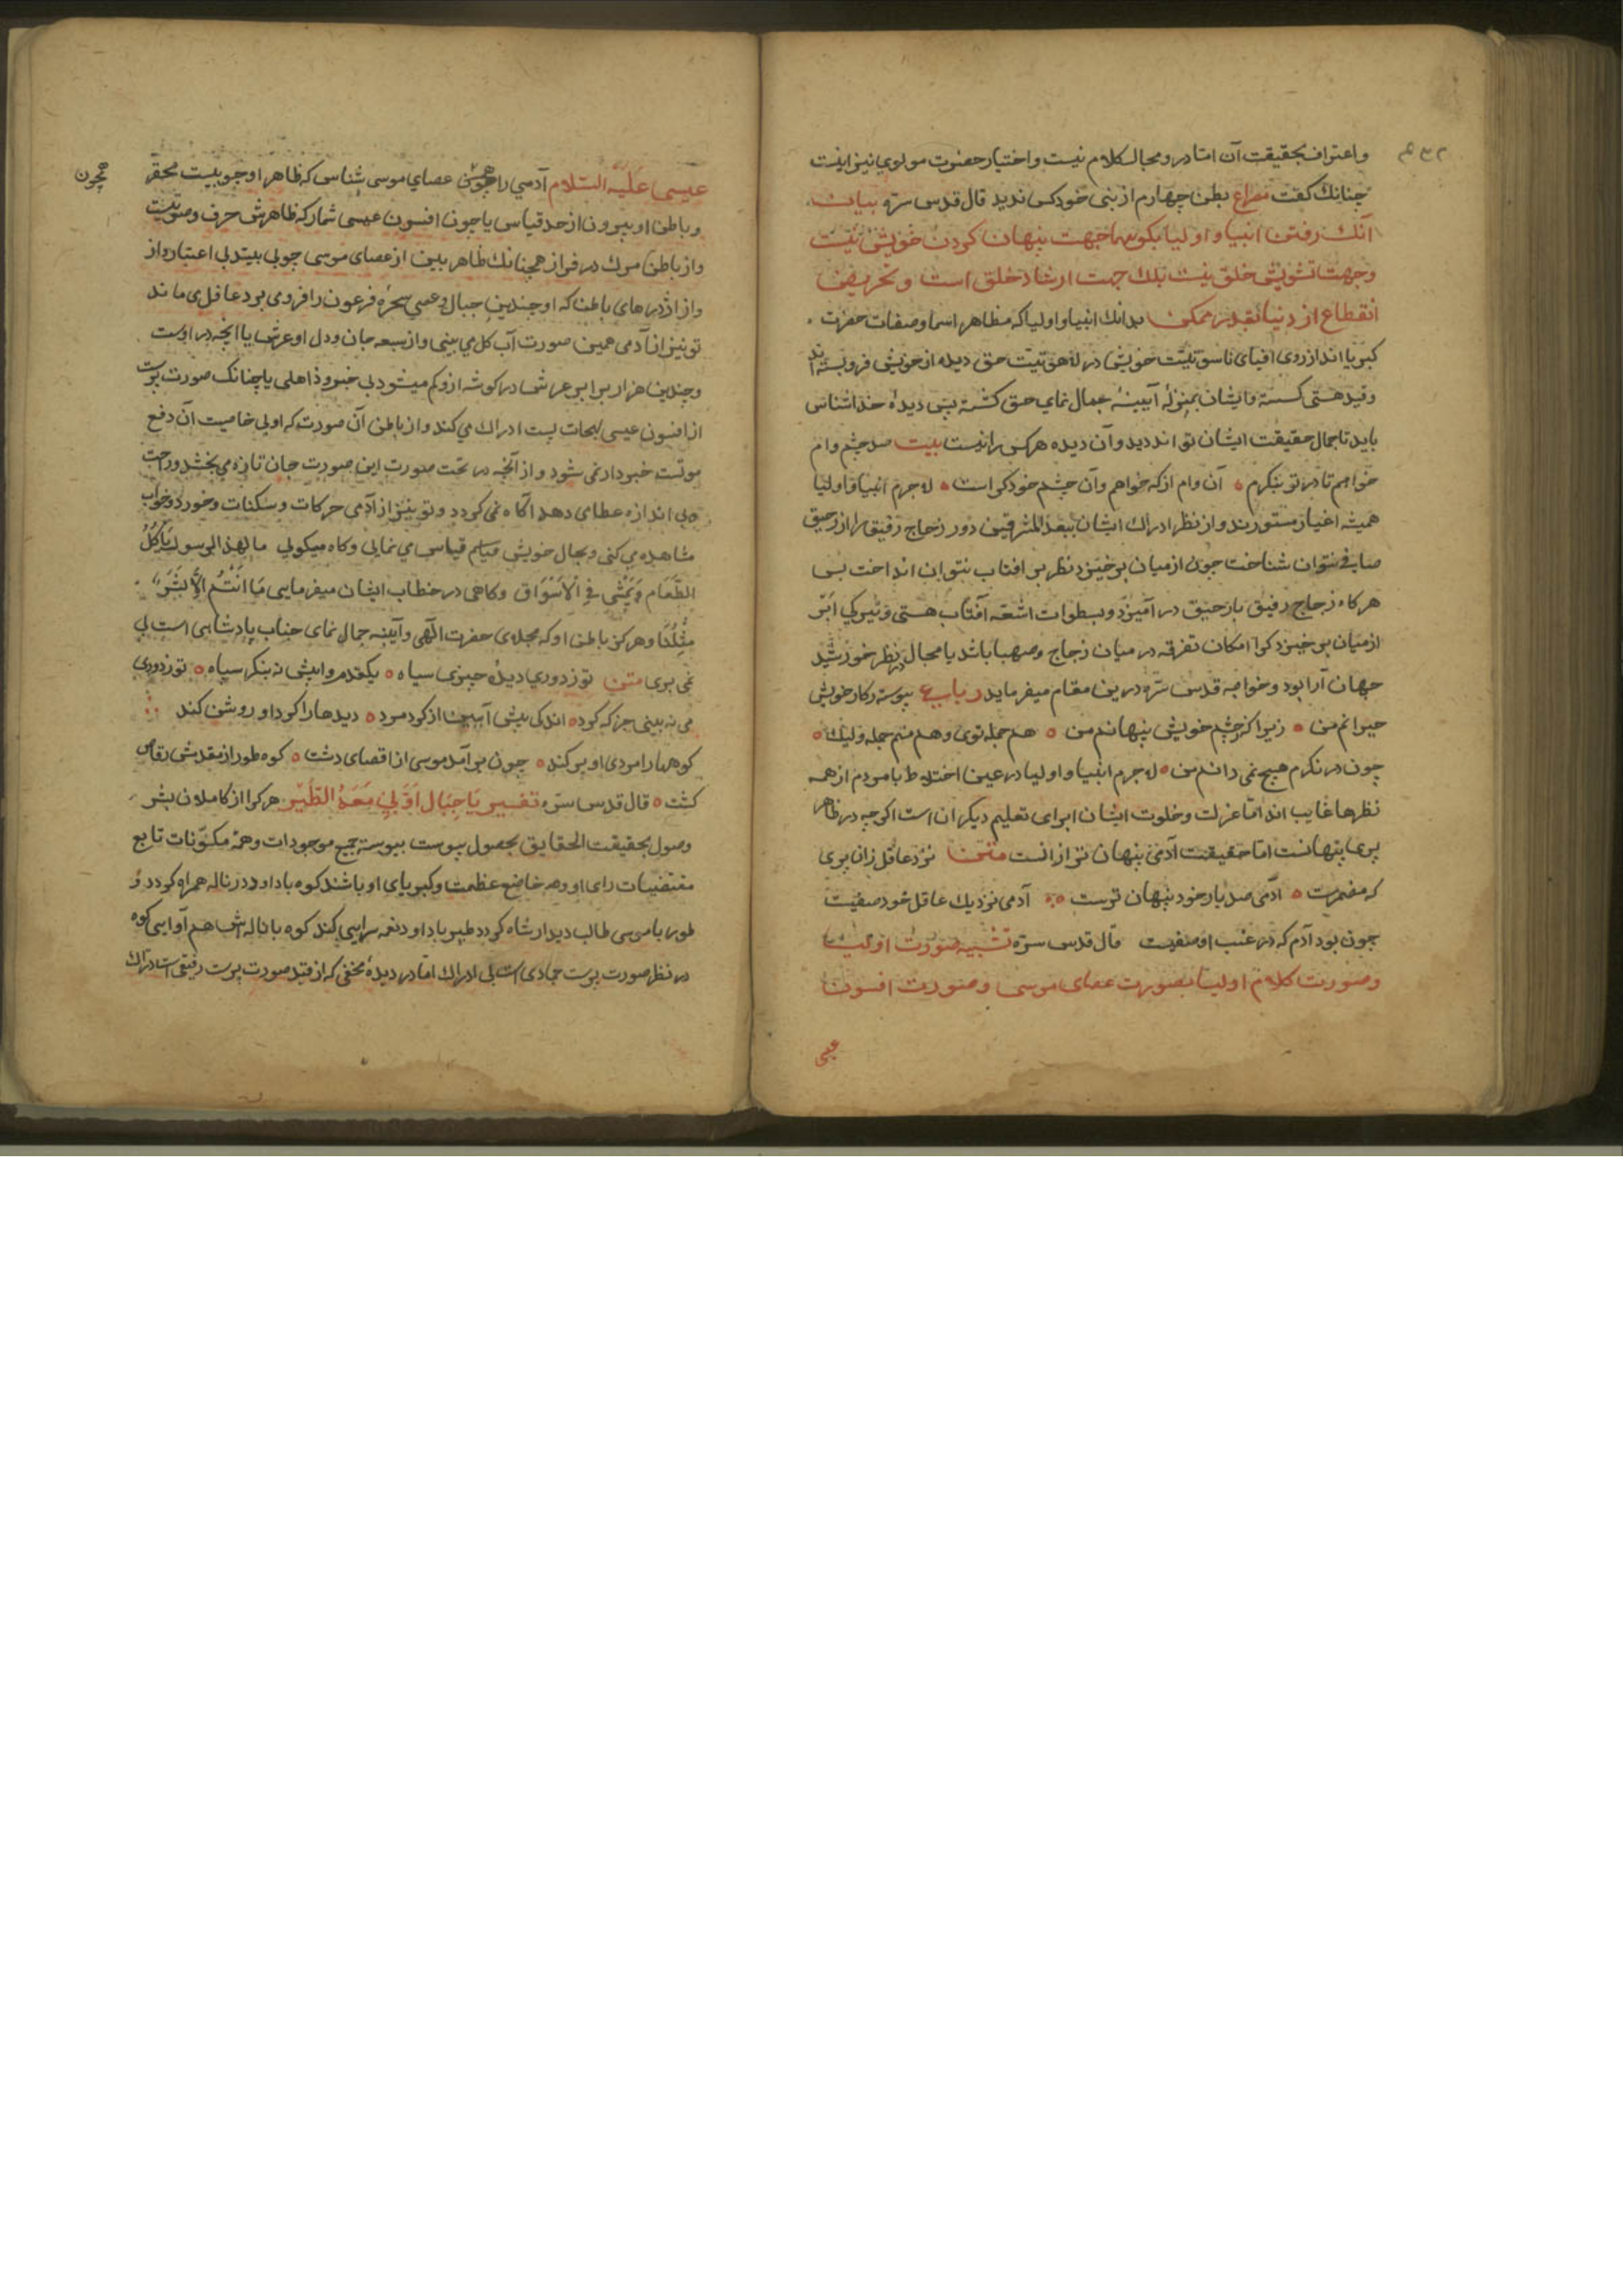 و اعتراف بحقیقت آن اما درو مجال کلام نیست و اختیار حضرت مولوی نیز اینست
چنانک گفت مصراع بطن چهارم از نبی خود کس ندید قال قدس سره بیان
آنک رفتن انبیا و اولیا بکوهها جهت پنهان کردن خویش نیست
و جهت تشویش خلق نیست بلک جهت ارشاد خلق است و تحریض
انقطاع از دنیا بقدر ممکن بدانک انبیا و اولیا که مظاهر اسما و صفات حضرت
کبریا اند از روی افنای ناسوتیت خویش در لاهوتیت حق دیده از خویش فرو بسته اند
و قید هستی گسسته و ایشان بمنزلهٔ آیینهٔ جمال نمای حق گشته پس دیدهٔ خداشناس
باید تا جمال حقیقت ایشان تواند دید و آن دیده هر کس را نیست بیت صد چشم وام
خواهم تا در تو بنگرم آن وام از که خواهم و آن چشم خود کراست لاجرم انبیا و اولیا
همیشه اغیار مستورند و از نظر ادراک ایشان ببعد المشرقین دور زجاج رقیق را از رحیق
صافی نتوان شناخت چون از میان برخیزد نظر بر افتاب نتوان انداخت بس
هرکاه زجاج رقیق با رحیق در آمیزد و بسطوات اشعهٔ آفتاب هستی و تیرگی ابر
از میان برخیزد کرا امکان تفرقه در میان زجاج و صهبا باشد یا مجال در نظر خورشید
جهان آرا بود و خواجه قدس سره درین مقام میفرماید رباعی پیوسته ز کار خویش
حیرانم من زیرا که ز چشم خویش پنهانم من هم جمله توی و هم منم جمله ولیک
چون در نگرم هیچ نمی دانم من لاجرم انبیا و اولیا در عین اختلاط با مردم از همه
نظرها غایب اند اما عزلت و خلوت ایشان برای تعلیم دیگران است اگرچه در ظاهر
پری پنهانست اما حقیقت آدمی پنهان تر از انست متن نزد عاقل زان پری
که مضمرست آدمی صد بار خود پنهان ترست آدمی نزدیک عاقل خود صفیست
چون بود آدم که در غیب او صفیست قال قدس سره تشبیه صورت اولیا
و صورت کلام اولیا بصورت عصای موسی و صورت افسون
عیسی
عیسی علیه السلام آدمی را همچون عصای موسی شناس که ظاهر او چوبیست محقر
همچون
و باطن او بیرون از حد قیاس یا چون افسون عیسی شمار که ظاهرش حرف و صوتیست
و از باطن مرگ در فراز همچنانک ظاهر بین از عصای موسی چوبی بیند بی اعتبار و از
و از اژدرهای باطن که او چندین جبال و عصی سحرهٔ فرعون را فرو می برد غافل می ماند
تو نیز از آدمی همین صورت آب و گل می بینی و از سعه جان و دل او عرش یا آنچه در اوست
و چندین هزار برابر عرش در گوشه ازو گم میشود بی خبر و ذاهلی یا چنانک صورت پرست
از افسون عیسی لهجات پست ادراک می کند و از باطن آن صورت که اولی خاصیت آن دفع
موتست خبردار نمی شود و از آنچه در تحت صورت این صورت جان تازه می بخشد و راحت
بی اندازه عطای دهد آگاه نمی گردد و تو نیز از آدمی حرکات و سکنات و خورد و خواب
مشاهده می کنی و بحال خویش قیاس می نمایی و گاه میگویی ما لهذا الرسول یأکل
الطعام و یمشی فی الأسواق و کاهی در خطاب ایشان میفرمایی ما انتم الا بشر
مثلنا و هرگز باطن او که مجلای حضرت الهی و آیینه جمال نمای جناب پادشاهی است پی
نمی بری متن تو ز دوری دیدهٔ چتری سیاه یک قدم وا پیش نه بنگر سپاه تو ز دوری
می نه بینی جز که گرد اندکی پیش آ ببین از گرد مرد دیدها را گرد او روشن کند
کوهها را مردی او بر کند چون بر آمد موسی از اقصای دشت کوه طور از مقدمش رقاص
گشت قال قدس سره تفسیر یا جبال اوبی معه الطیر هر کرا از کاملان بشر
وصول بحقیقت الحقایق بحصول پیوست پیوسته جمیع موجودات و همه مکونات تابع
مقتضیات رای او و همه خاضع عظمت و کبریای او باشند کوه با داود در ناله همراه گردد و
طور با موسی طالب دیدار شاه گردد طیر با داود نغمه سرایی کند کوه با ناله اش هم آوایی کوه
در نظر صورت پرست جمادی است بی ادراک اما در دیدهٔ محققی که از قید صورت پرست رفیقی است دراک